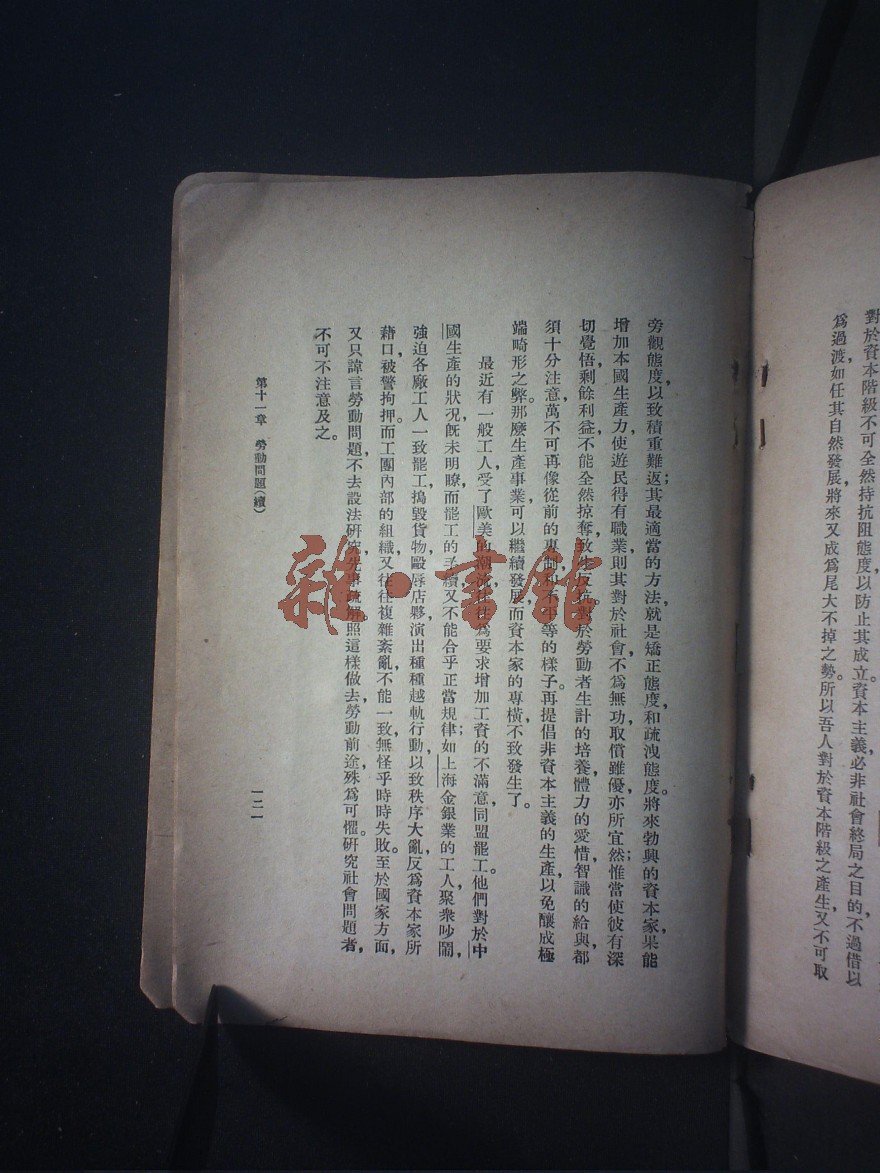 對於資本階級不可全然持抗阻態度以防止其成立。資本主義必非社會終局之目的，不過借以
爲過渡，如任其自然發展，將來又成爲尾大不掉之勢。所以吾人對於資本階級之產生，又不可取
旁觀態度，以致積重難返；其最適當的方法，就是矯正態度，和疏洩態度。將來勃興的資本家，果能
增加本國生產力，使遊民得有職業，則其對於社會，不爲無功，取償雖優，亦所宜然；惟當使彼有深
切覺悟，剩餘利益，不能全然掠奪，致生反抗。對於勞動者生計的培養，體力的愛惜，智識的給與，都
須十分注意，萬不可再像從前的專制和不平等的樣子。再提倡非資本主義的生產，以免釀成極
端畸形之弊。那麼生產事業，可以繼續發展，而資本家的專橫，不致發生了。
最近有一般工人，受了歐美的潮流，往往爲要求增加工資的不滿意，同盟罷工。他們對於中
國生產的狀況，旣未明瞭，而罷工的手續，又不能合乎正當規律；如上海金銀業的工人，聚衆吵鬧，
強迫各廠工人一致罷工，搗毀貨物，毆辱店夥，演出種種越軌行動，以致秩序大亂，反爲資本家所
藉口，被警拘押。而工團內部的組織，又往往複雜紊亂，不能一致，無怪乎時時失敗。至於國家方面，
又只諱言勞動問題，不去設法研究，先事疏解。照這樣做去，勞動前途，殊爲可懼。研究社會問題者，
不可不注意及之。
第十一章　勞動問題（續）
一二一
雜·書館